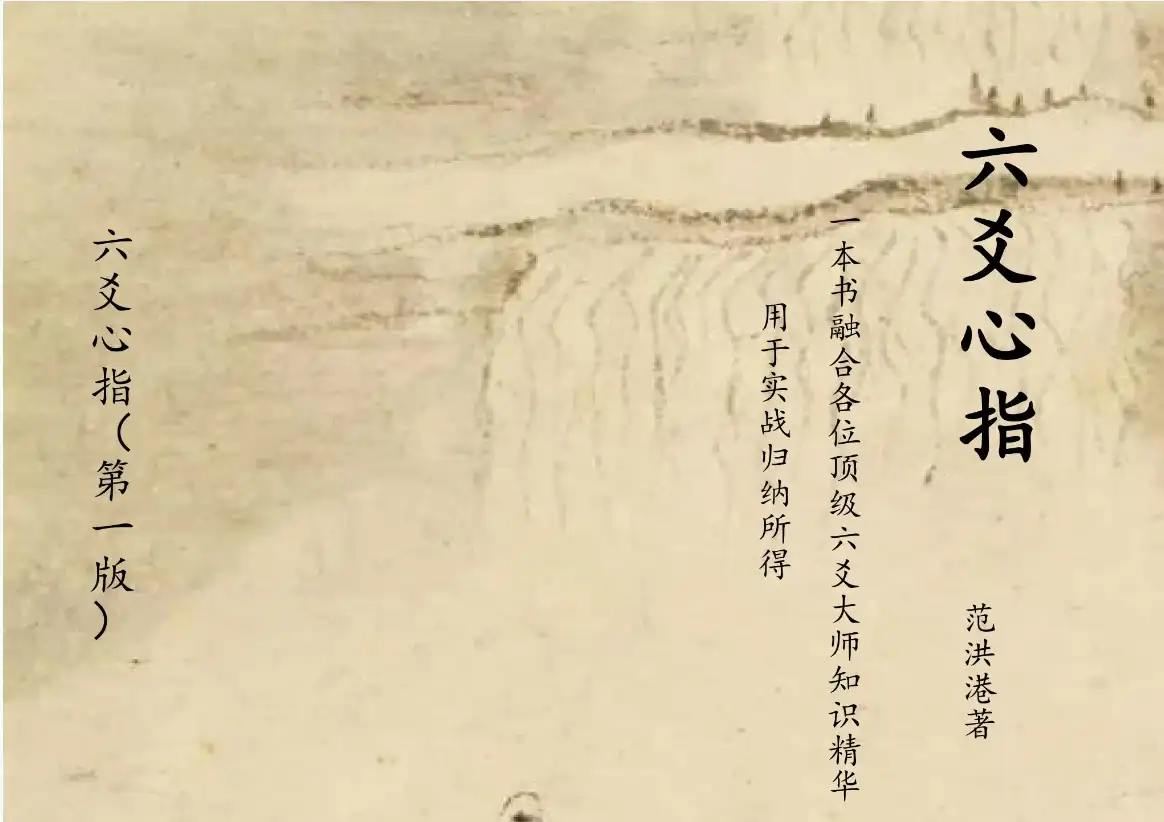 六爻心指
范洪港著
一本书融合各位顶级六爻大师知识精华
用于实战归纳所得
六爻心指（第一版）